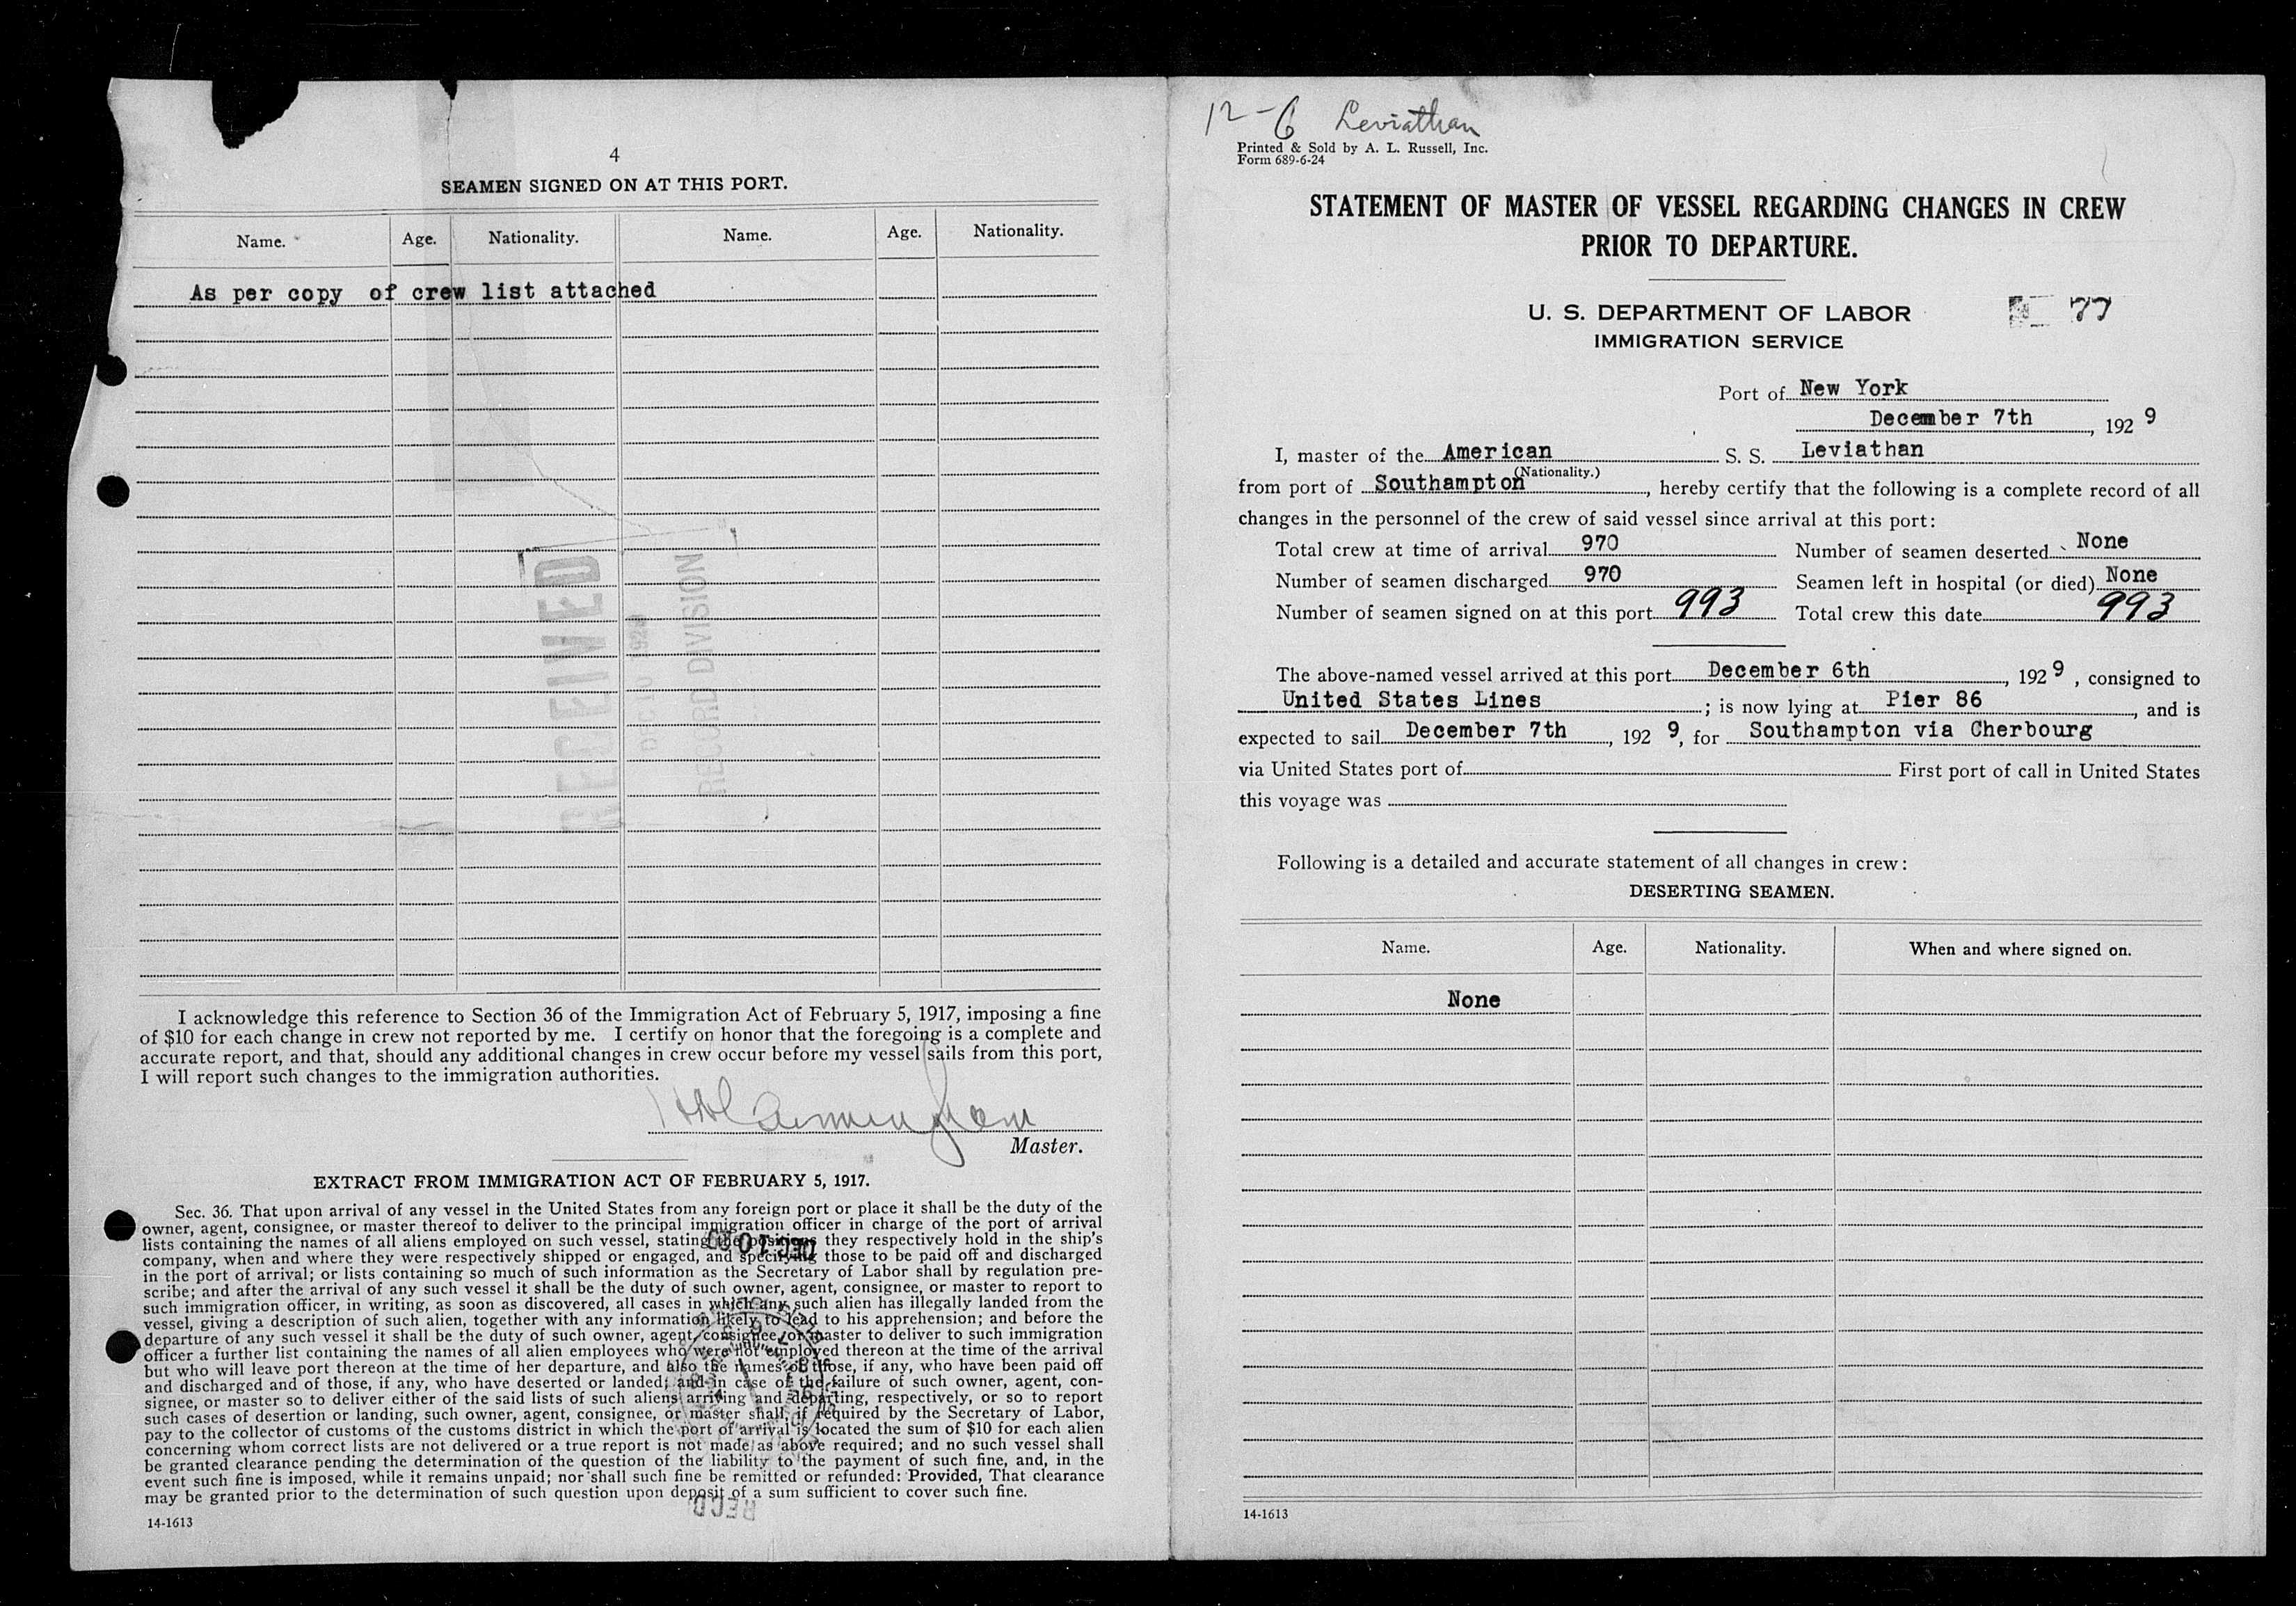 4
SEAMEN SIGNED ON AT THIS PORT.
Name. Age. Nationality. Name. Age. Nationality.
As per copy of crew list attached
RECEIVED
DEC 10 1929
RECORD DIVISION
I acknowledge this reference to Section 36 of the Immigration Act of February 5, 1917, imposing a fine
of $10 for each change in crew not reported by me. I certify on honor that the foregoing is a complete and
accurate report, and that, should any additional changes in crew occur before my vessel sails from this port,
I will report such changes to the immigration authorities.
Master.
EXTRACT FROM IMMIGRATION ACT OF FEBRUARY 5, 1917.
Sec. 36. That upon arrival of any vessel in the United States from any foreign port or place it shall be the duty of the
owner, agent, consignee, or master thereof to deliver to the principal immigration officer in charge of the port of arrival
lists containing the names of all aliens employed on such vessel, stating the positions they respectively hold in the ship's
company, when and where they were respectively shipped or engaged, and specifying those to be paid off and discharged
in the port of arrival; or lists containing so much of such information as the Secretary of Labor shall by regulation pre-
scribe; and after the arrival of any such vessel it shall be the duty of such owner, agent, consignee, or master to report to
such immigration officer, in writing, as soon as discovered, all cases in which any such alien has illegally landed from the
vessel, giving a description of such alien, together with any information likely to lead to his apprehension; and before the
departure of any such vessel it shall be the duty of such owner, agent, consignee, or master to deliver to such immigration
officer a further list containing the names of all alien employees who were not employed thereon at the time of the arrival
but who will leave port thereon at the time of her departure, and also the names of those, if any, who have been paid off
and discharged and of those, if any, who have deserted or landed; and in case of the failure of such owner, agent, con-
signee, or master so to deliver either of the said lists of such aliens arriving and departing, respectively, or so to report
such cases of desertion or landing, such owner, agent, consignee, or master shall, if required by the Secretary of Labor,
pay to the collector of customs of the customs district in which the port of arrival is located the sum of $10 for each alien
concerning whom correct lists are not delivered or a true report is not made as above required; and no such vessel shall
be granted clearance pending the determination of the question of the liability to the payment of such fine, and, in the
event such fine is imposed, while it remains unpaid; nor shall such fine be remitted or refunded: Provided, That clearance
may be granted prior to the determination of such question upon deposit of a sum sufficient to cover such fine.
REC'D
14-1613
12-6 Leviathan
Printed & Sold by A. L. Russell, Inc.
Form 689-6-24
STATEMENT OF MASTER OF VESSEL REGARDING CHANGES IN CREW
PRIOR TO DEPARTURE.
U. S. DEPARTMENT OF LABOR
77
IMMIGRATION SERVICE
Port of New York
December 7th, 1929
I, master of the American S. S. Leviathan
(Nationality.)
from port of Southampton, hereby certify that the following is a complete record of all
changes in the personnel of the crew of said vessel since arrival at this port:
Total crew at time of arrival 970 Number of seamen deserted None
Number of seamen discharged 970 Seamen left in hospital (or died) None
Number of seamen signed on at this port 993 Total crew this date 993
The above-named vessel arrived at this port December 6th, 1929, consigned to
United States Lines; is now lying at Pier 86, and is
expected to sail December 7th, 1929, for Southampton via Cherbourg
via United States port of First port of call in United States
this voyage was
Following is a detailed and accurate statement of all changes in crew:
DESERTING SEAMEN.
Name. Age. Nationality. When and where signed on.
None
14-1613